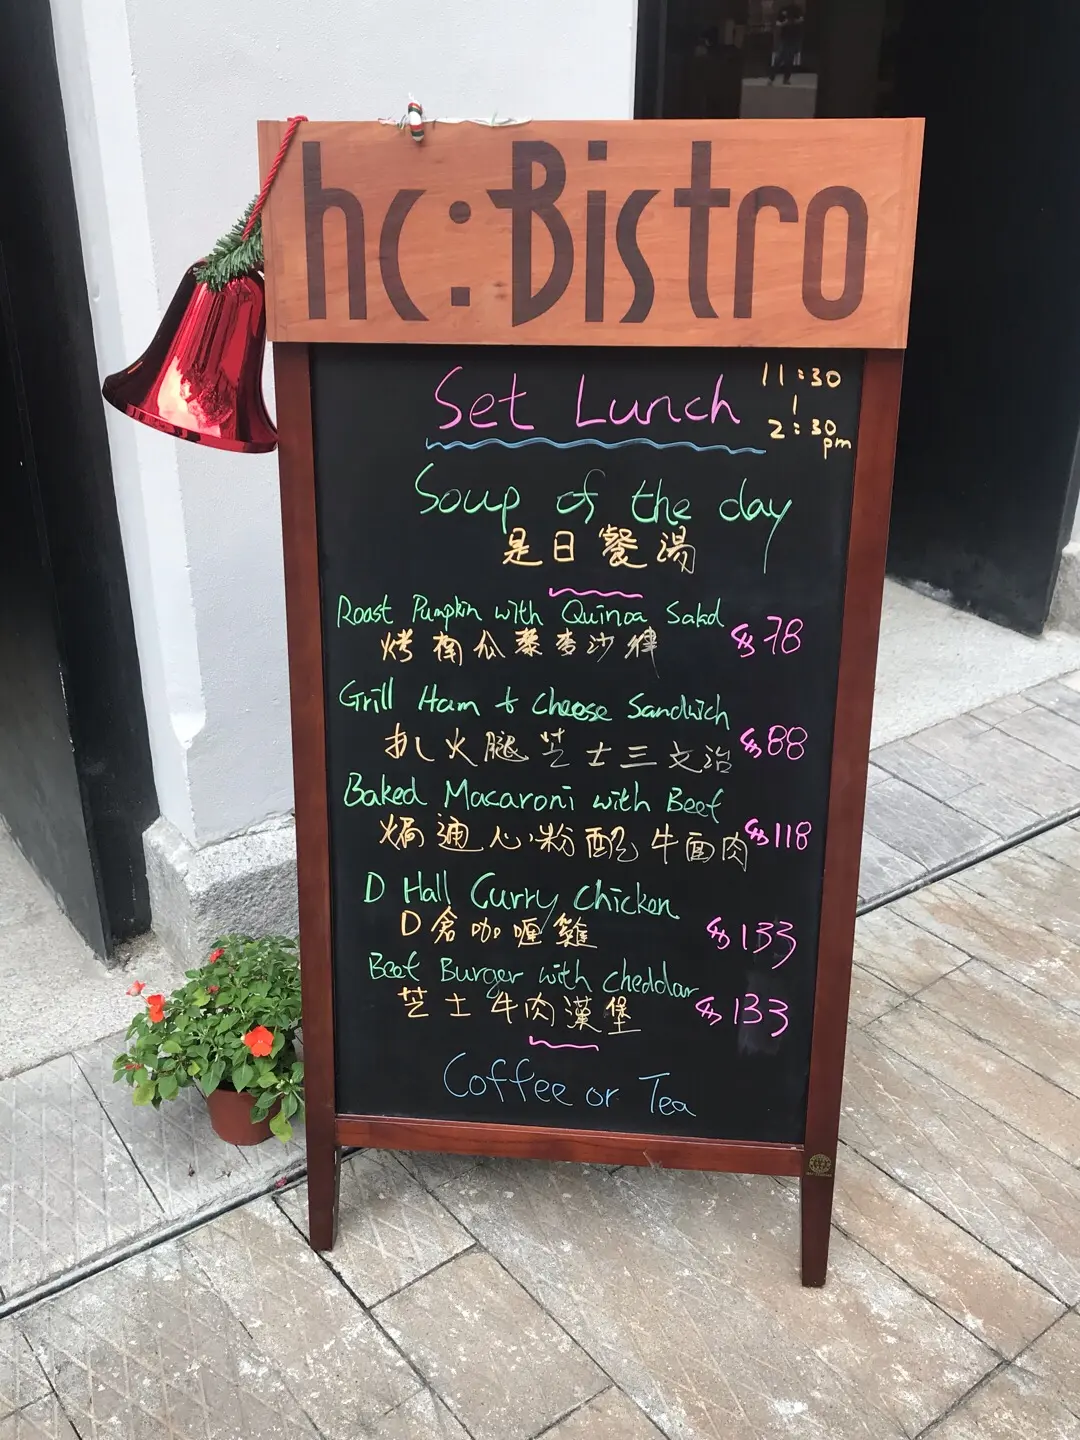 hc:Bistro
Set Lunch
11:30
|
2:30
pm
Soup of the day
是日餐湯
Roast Pumpkin with Quinoa Salad
烤南瓜藜麥沙律
$78
Grill Ham & Cheese Sandwich
扒火腿芝士三文治
$88
Baked Macaroni with Beef
焗通心粉配牛面肉
$118
D Hall Curry Chicken
D倉咖喱雞
$133
Beef Burger with cheddar
芝士牛肉漢堡
$133
Coffee or Tea